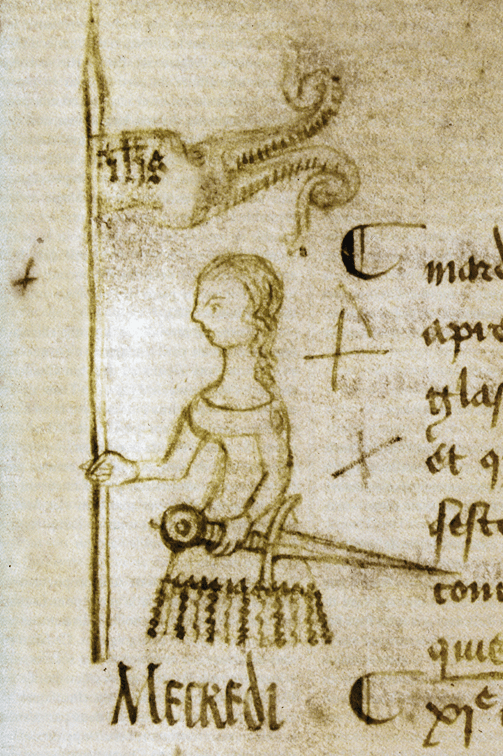 ihs
C
mard
apre
glas
et q
seste
quie
Mecredi
C xje